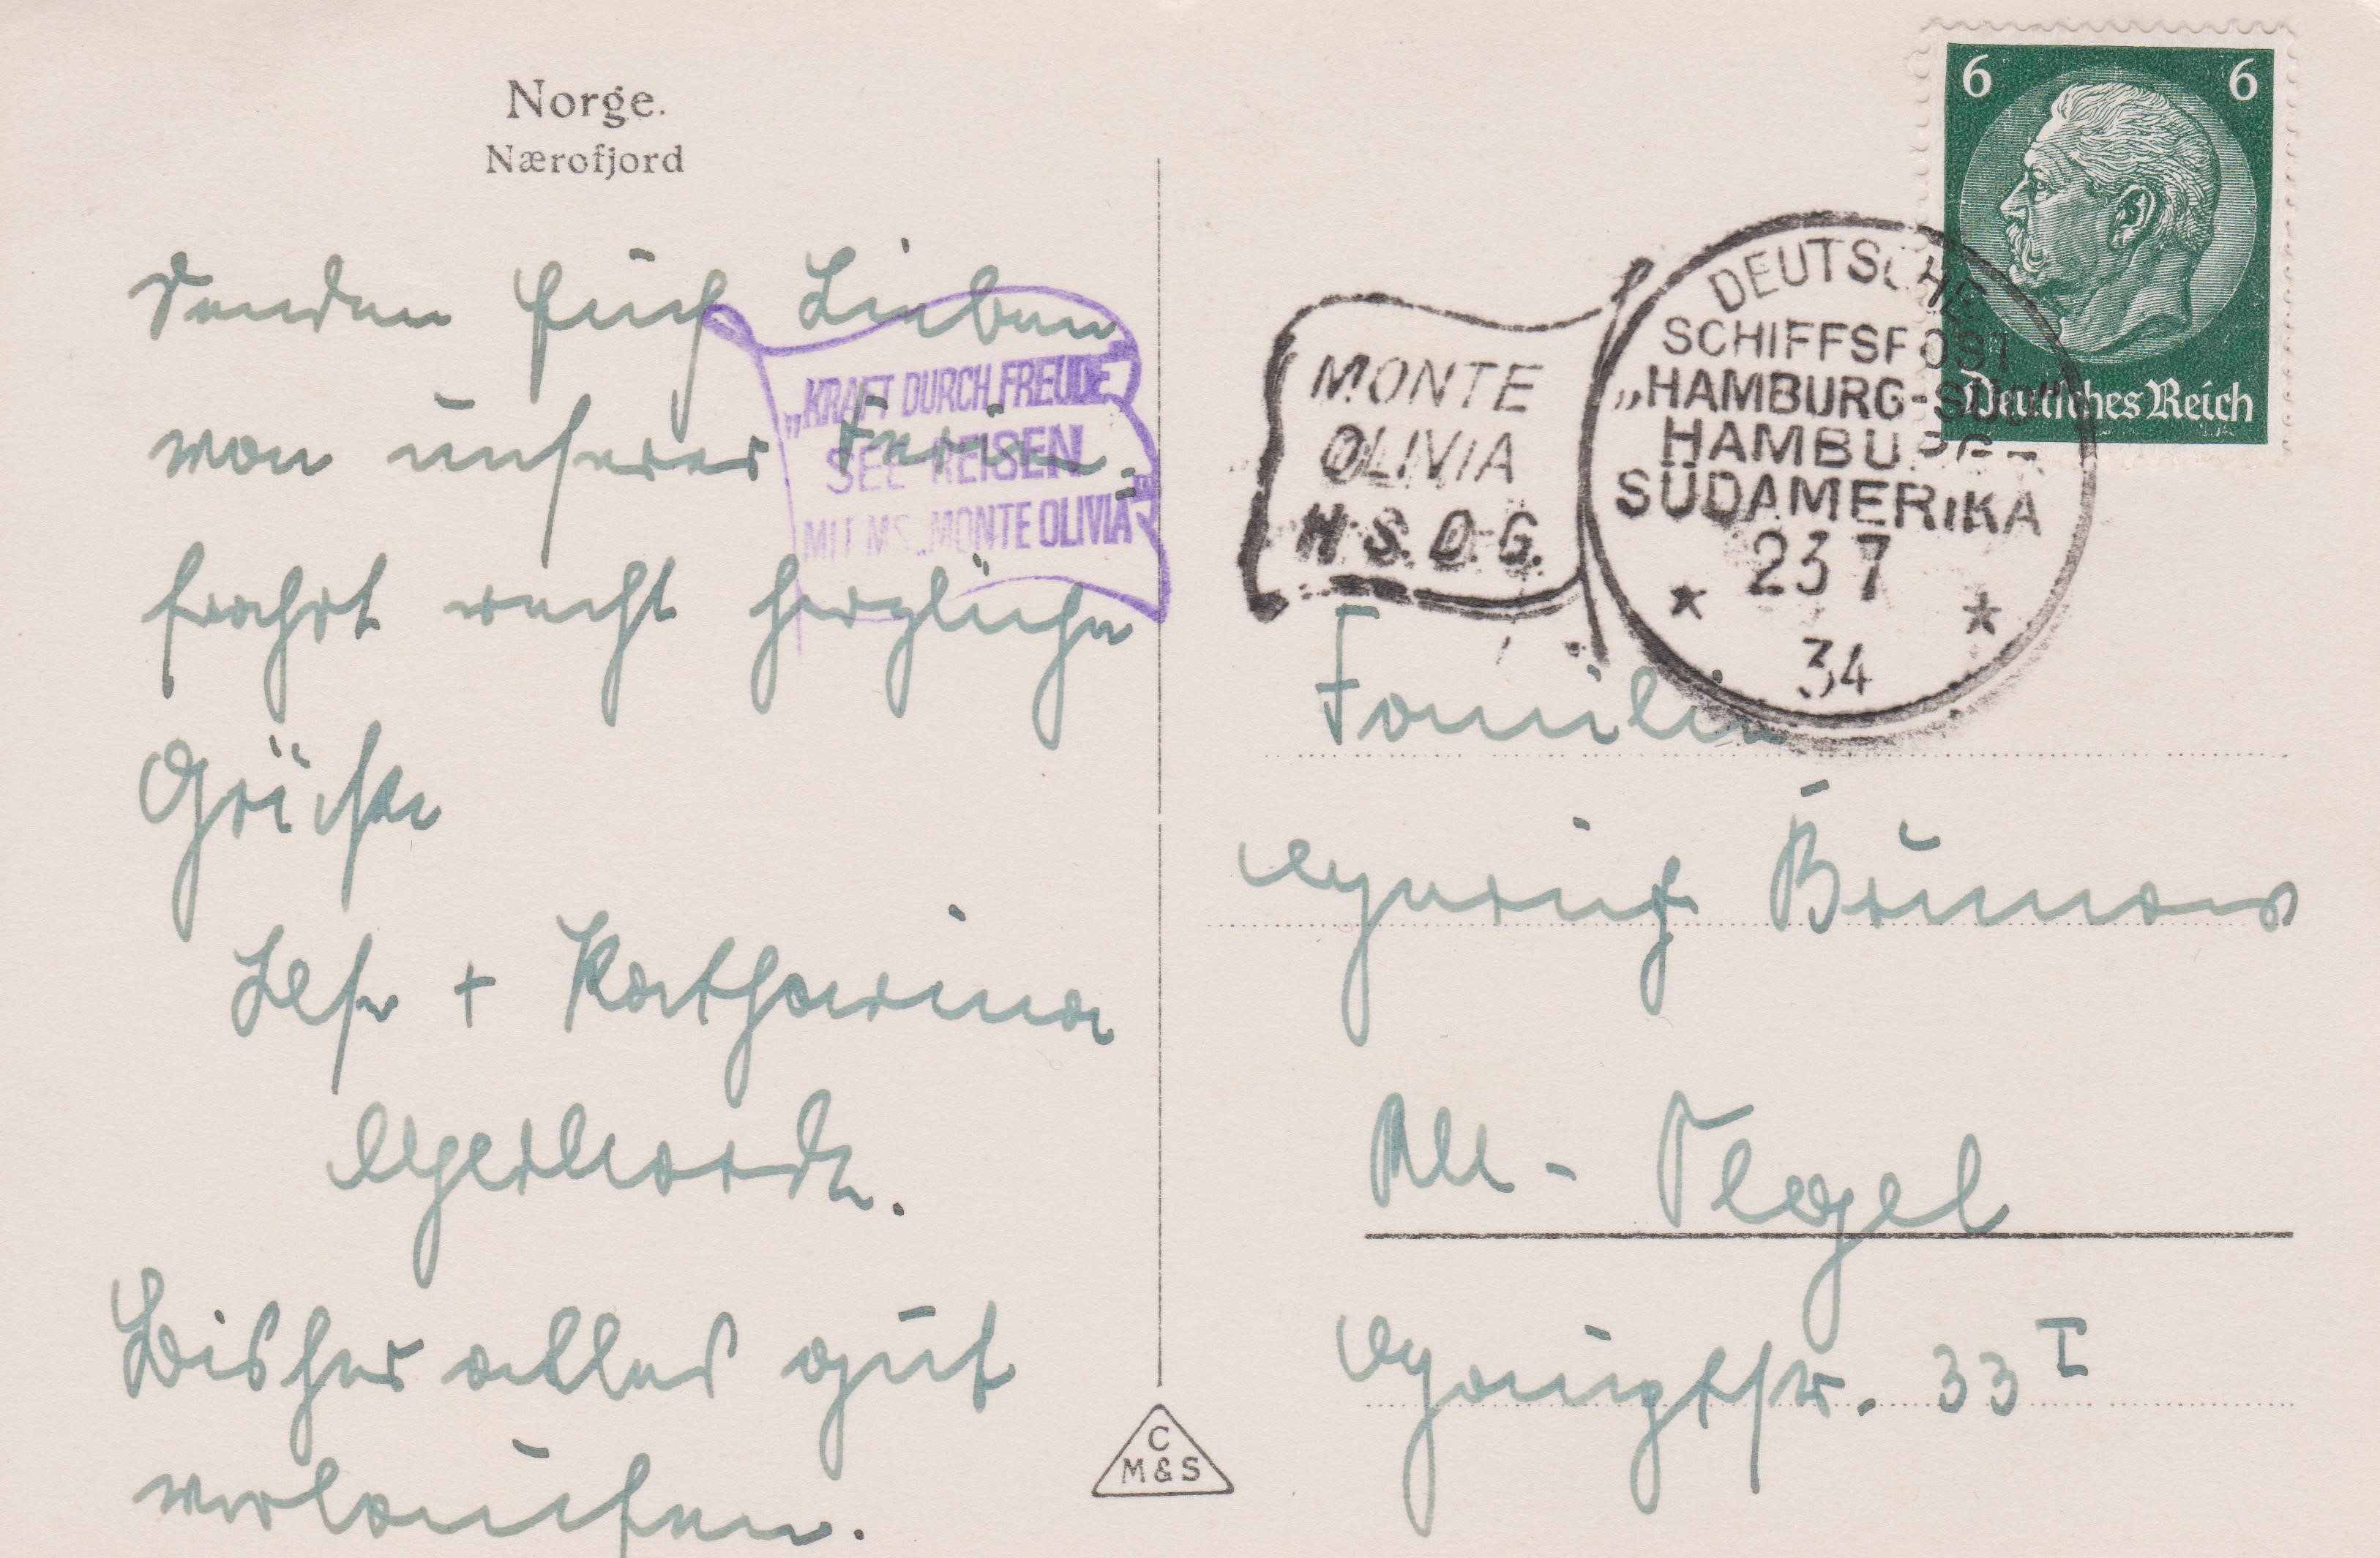 Norge.
Nærofjord
Senden Euch Lieben
von unserer Ferien-
fahrt recht herzliche
Grüße
+ Katharina
Bisher alles gut
verlaufen.
„KRAFT DURCH FREUDE"
SEE-REISEN
MIT MS. „MONTE OLIVIA"
C
M & S
6 6
Deutsches Reich
MONTE
OLIVIA
H.S.D.G.
DEUTSCHE
SCHIFFSPOST
„HAMBURG-SÜD"
HAMBURG-
SÜDAMERIKA
23 7
34
Familie
Brunow
Alt-Tegel
Hauptstr. 33 I